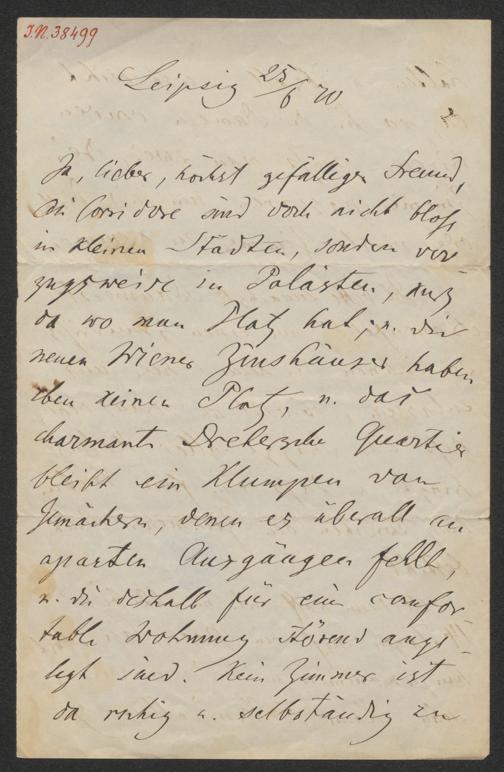 J.N. 38499
Leipzig 25/6 70
Ja, lieber, höchst gefälliger Freund,
die Corridore sind doch nicht bloss
in kleinen Städten, sondern vor
zugsweise in Palästen, kurz
da wo man Platz hat; u. die
neuen Wiener Zinshäuser haben
eben keinen Platz, u. das
charmante Drehersche Quartier
bleibt ein Klumpen von
Gemächern, denen es überall an
aparten Ausgängen fehlt,
u. die deshalb für eine comfor
table Wohnung störend ange-
legt sind. Kein Zimmer ist
da ruhig u. selbständig zu